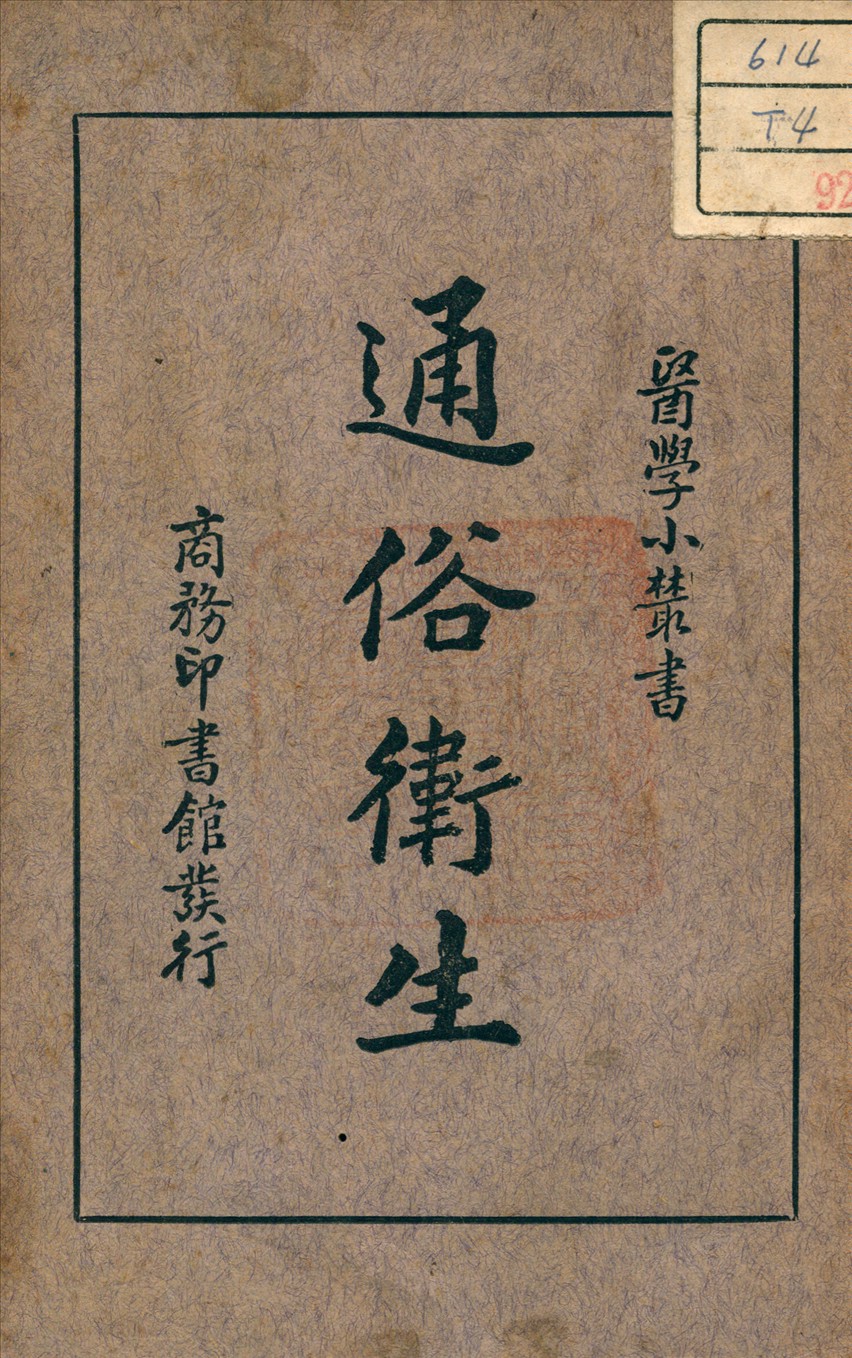 醫學小叢書
通俗衛生
商務印書館發行
614
T4
92